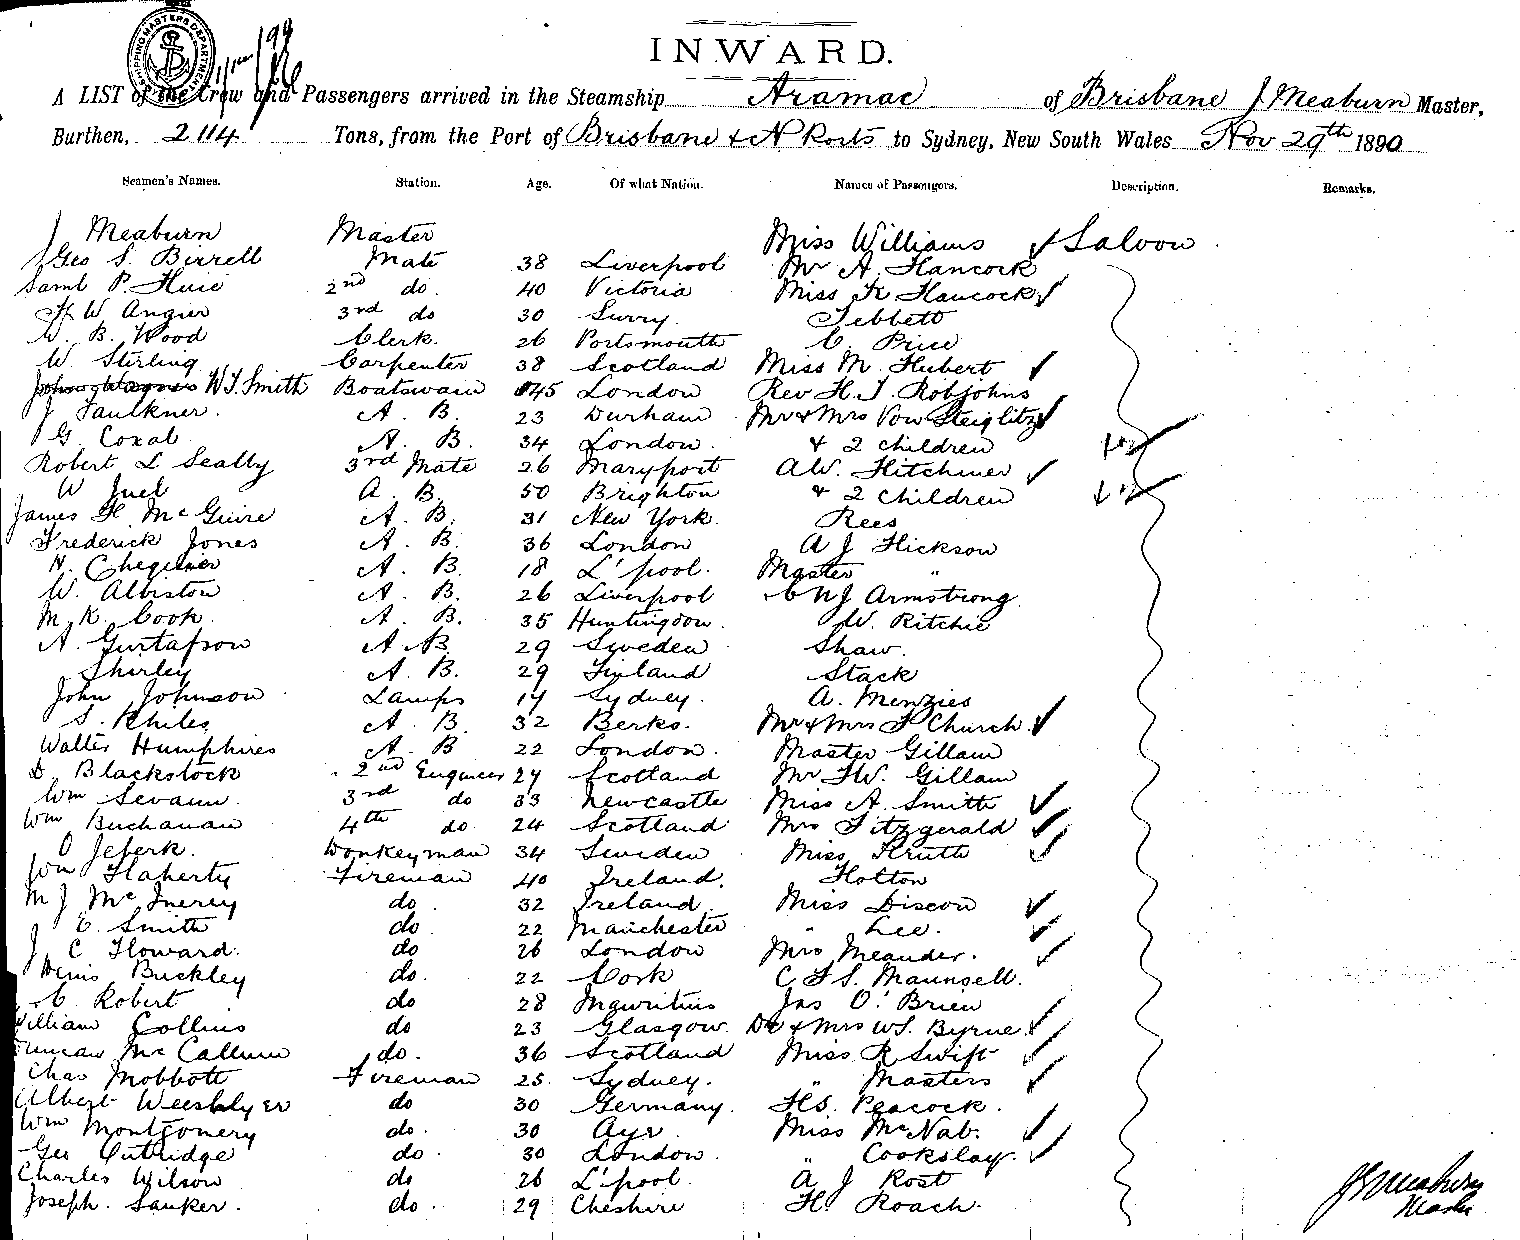 SHIPPING MASTERS DEPARTMENT
INWARD.
A LIST of the Crew and Passengers arrived in the Steamship Aramac of Brisbane J Meaburn Master,
Burthen, 2114 Tons, from the Port of Brisbane & N Ports to Sydney, New South Wales Nov 29th 1890
Seamen's Names. Station. Age. Of what Nation. Names of Passengers. Description. Remarks.
J Meaburn Master Miss Williams Saloon
Geo S. Birrell Mate 38 Liverpool Mr A. Hancock
Saml P. Huie 2nd do. 40 Victoria Miss K Hancock
H W Angier 3rd do 30 Surry Tebbett
W. B. Wood Clerk. 26 Portsmouth C. Price
W. Stirling Carpenter 38 Scotland Miss M. Hubert
W. T. Smith Boatswain 45 London Rev H. T. Robjohns
J Faulkner. A. B. 23 Durham Mr & Mrs Von Steiglitz
G. Coxal A. B. 34 London. & 2 children
Robert L Seally 3rd Mate 26 Maryport A W. Hitchiner
W Juel A. B. 50 Brighton & 2 Children
James H. McGuire A. B. 31 New York. Rees
Frederick Jones A. B. 36 London A J Hickson
H. A. B. 18 L'pool. Master "
W. Albiston A. B. 26 Liverpool C N J Armstrong
M. K. Cook. A. B. 35 Huntingdon. W. Ritchie
A. Gustafson A. B. 29 Sweden Shaw.
Shirley A. B. 29 Finland Stack
John Johnson Lamps 19 Sydney. A. Menzies
S. Khiles A. B. 32 Berks. Mr & Mrs F Church
Walter Humphires A. B 22 London. Master Gillam
D. Blackstock 2nd Engineer 29 Scotland Mr F W. Gillam
Wm Sevann. 3rd do 33 Newcastle Miss A. Smith
Wm Buchanan 4th do. 24 Scotland Mrs Fitzgerald
O Jeberk. Donkeyman 34 Sweden Miss Kruth
Wm Flaherty Fireman 40 Ireland. Hotton
M J McInerny do. 32 Ireland. Miss Discon
E. Smith do. 22 Manchester " Lee.
J C Howard. do 26 London Mrs Meander.
Denis Buckley do. 22 Cork C F S. Maunsell.
C. Robert do 28 Mauritius Jas O'Brien
William Collins do 23 Glasgow. Dr & Mrs W S. Byrne
Duncan McCallum do. 36 Scotland Miss R Swift
Chas Mobbott Fireman 25. Sydney. " Masters
Albert do 30 Germany. H S. Peacock.
Wm Montgomery do. 30 Ayr Miss McNab.
Geo Cutridge do. 30 London. " Cookslay.
Charles Wilson do 26 L'pool. A J Rost
Joseph. Sanker. do. 29 Cheshire H. Roach.
J Meaburn
Master